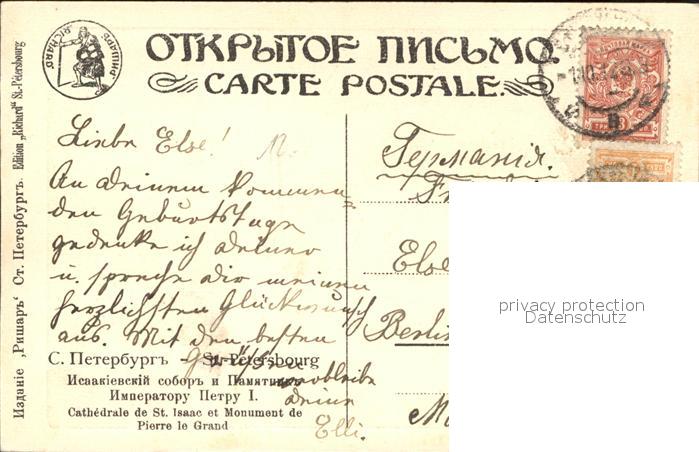 ОТКРЫТОЕ ПИСЬМО.
CARTE POSTALE.
RICHARD РИШАРЪ
Изданіе „Ришаръ‘ Ст. Петербургъ. Edition „Richard“ St.-Pétersbourg
Liebe Else!
An deinem kommen=
den Geburtstage
gedenke ich deiner
u. spreche dir meinen
herzlichsten Glückwunsch
aus. Mit den besten
Grüßen
verbleibe
deine
Elli.
С. Петербургъ – St.-Petersbourg
Исаакіевскій соборъ и Памятникъ
Императору Петру I.
Cathédrale de St. Isaac et Monument de
Pierre le Grand
Германія.
Else
Berlin
privacy protection
Datenschutz